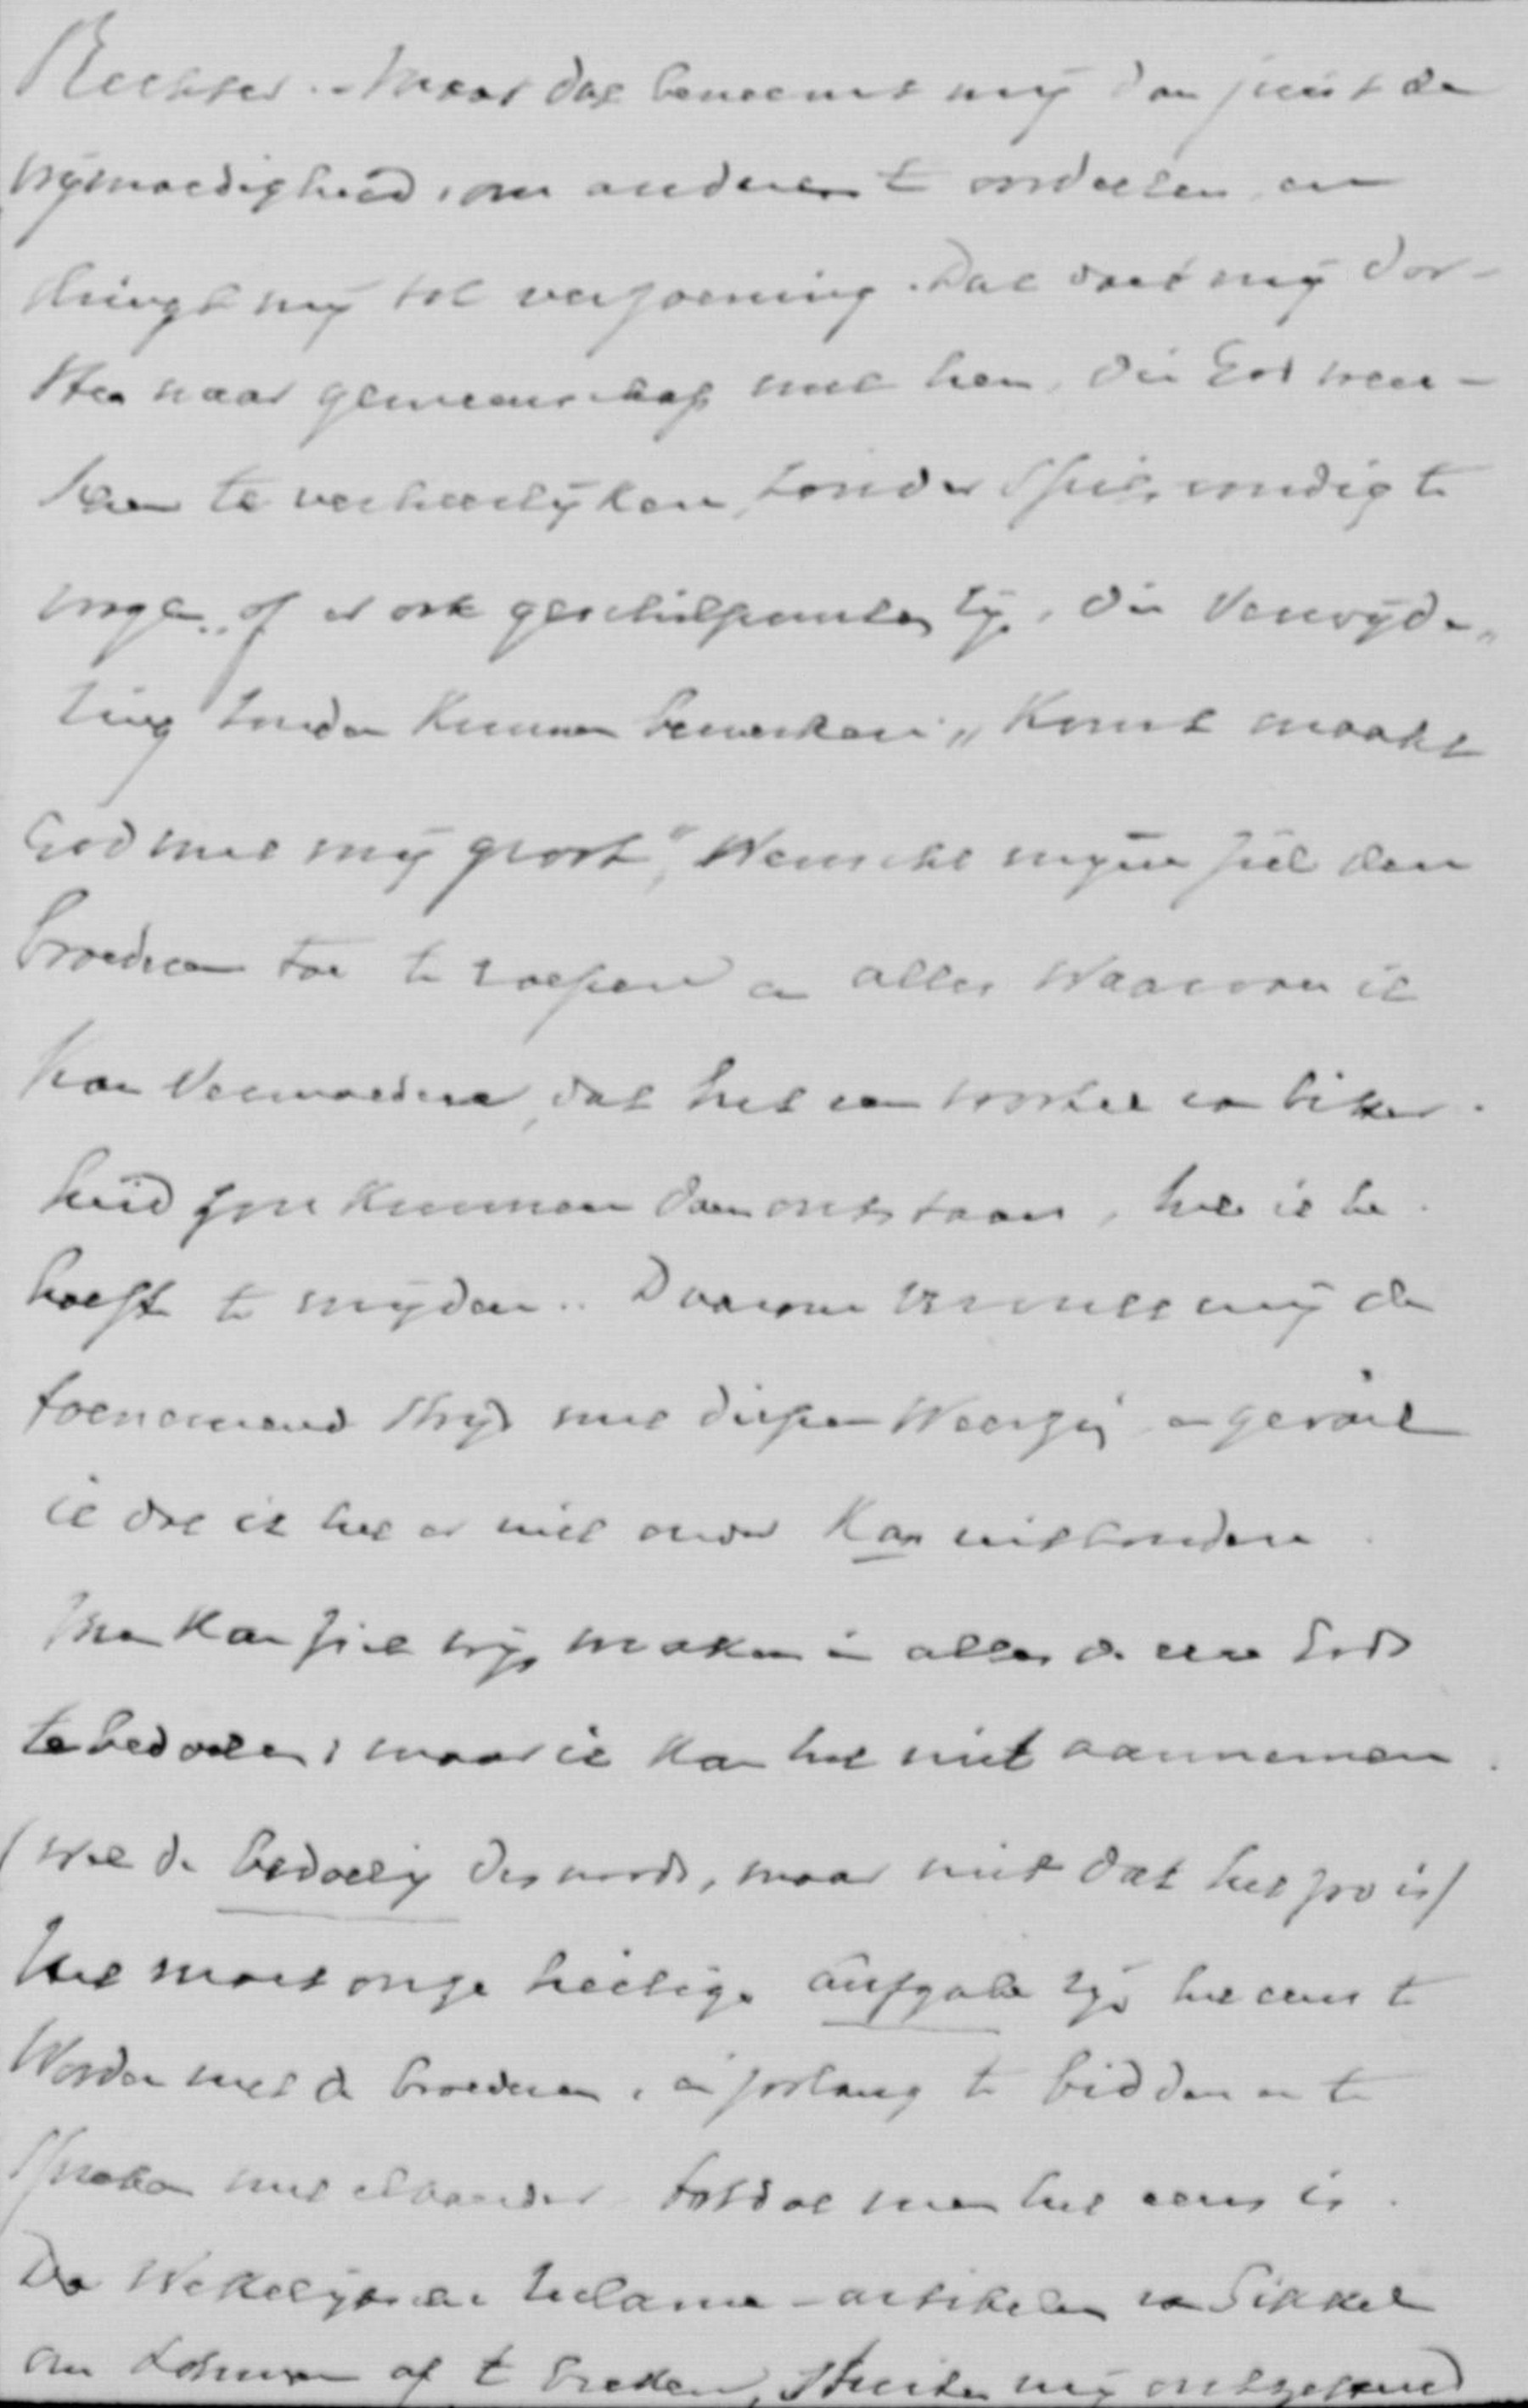 Rechter. - Maar dat beneemt mij dan juist de
vrijmoedigheid, om anderen te oordeelen en
dringt mij tot verzoening. Dat doet mij dor-
sten naar gemeenschap met hen, die God wen-
schen te verheerlijken, zonder spitsvondig te
vragen of er ook geschilpunten zijn, die verwijde-
ring zouden kunnen bewerken. "Komt maakt
God met mij groot", wenscht mijne ziel den
broederen toe te roepen en alles waarvan ik
kan vermoeden, dat het een wortel van bitter-
heid zou kunnen doen ontstaan, heb ik be-
hoefte te mijden.. Daarom vervult mij de
toenemende strijd met diepen weerzin en gevoel
ik dat ik het er niet onder kan uithouden.
Men kan zich wijs maken in alles de eere Gods
te bedoelen, maar ik kan het niet aannemen.
(wel de bedoeling, maar niet dat het zoo is)
Het moet onze heilige aufgabe zijn het eens te
worden met de broederen, en zoolang te bidden en te
spreken met elkander totdat men het eens is.
De wekelijksche artikelen van Sikkel
om Lohman af te breken, stuiten mij ontzettend